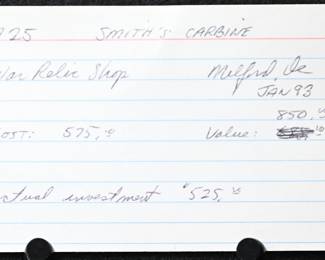 25 SMITH'S CARBINE
War Relic Shop Milford, De
JAN 93
850.00
COST: 575.00 Value:
Actual investment $525.00